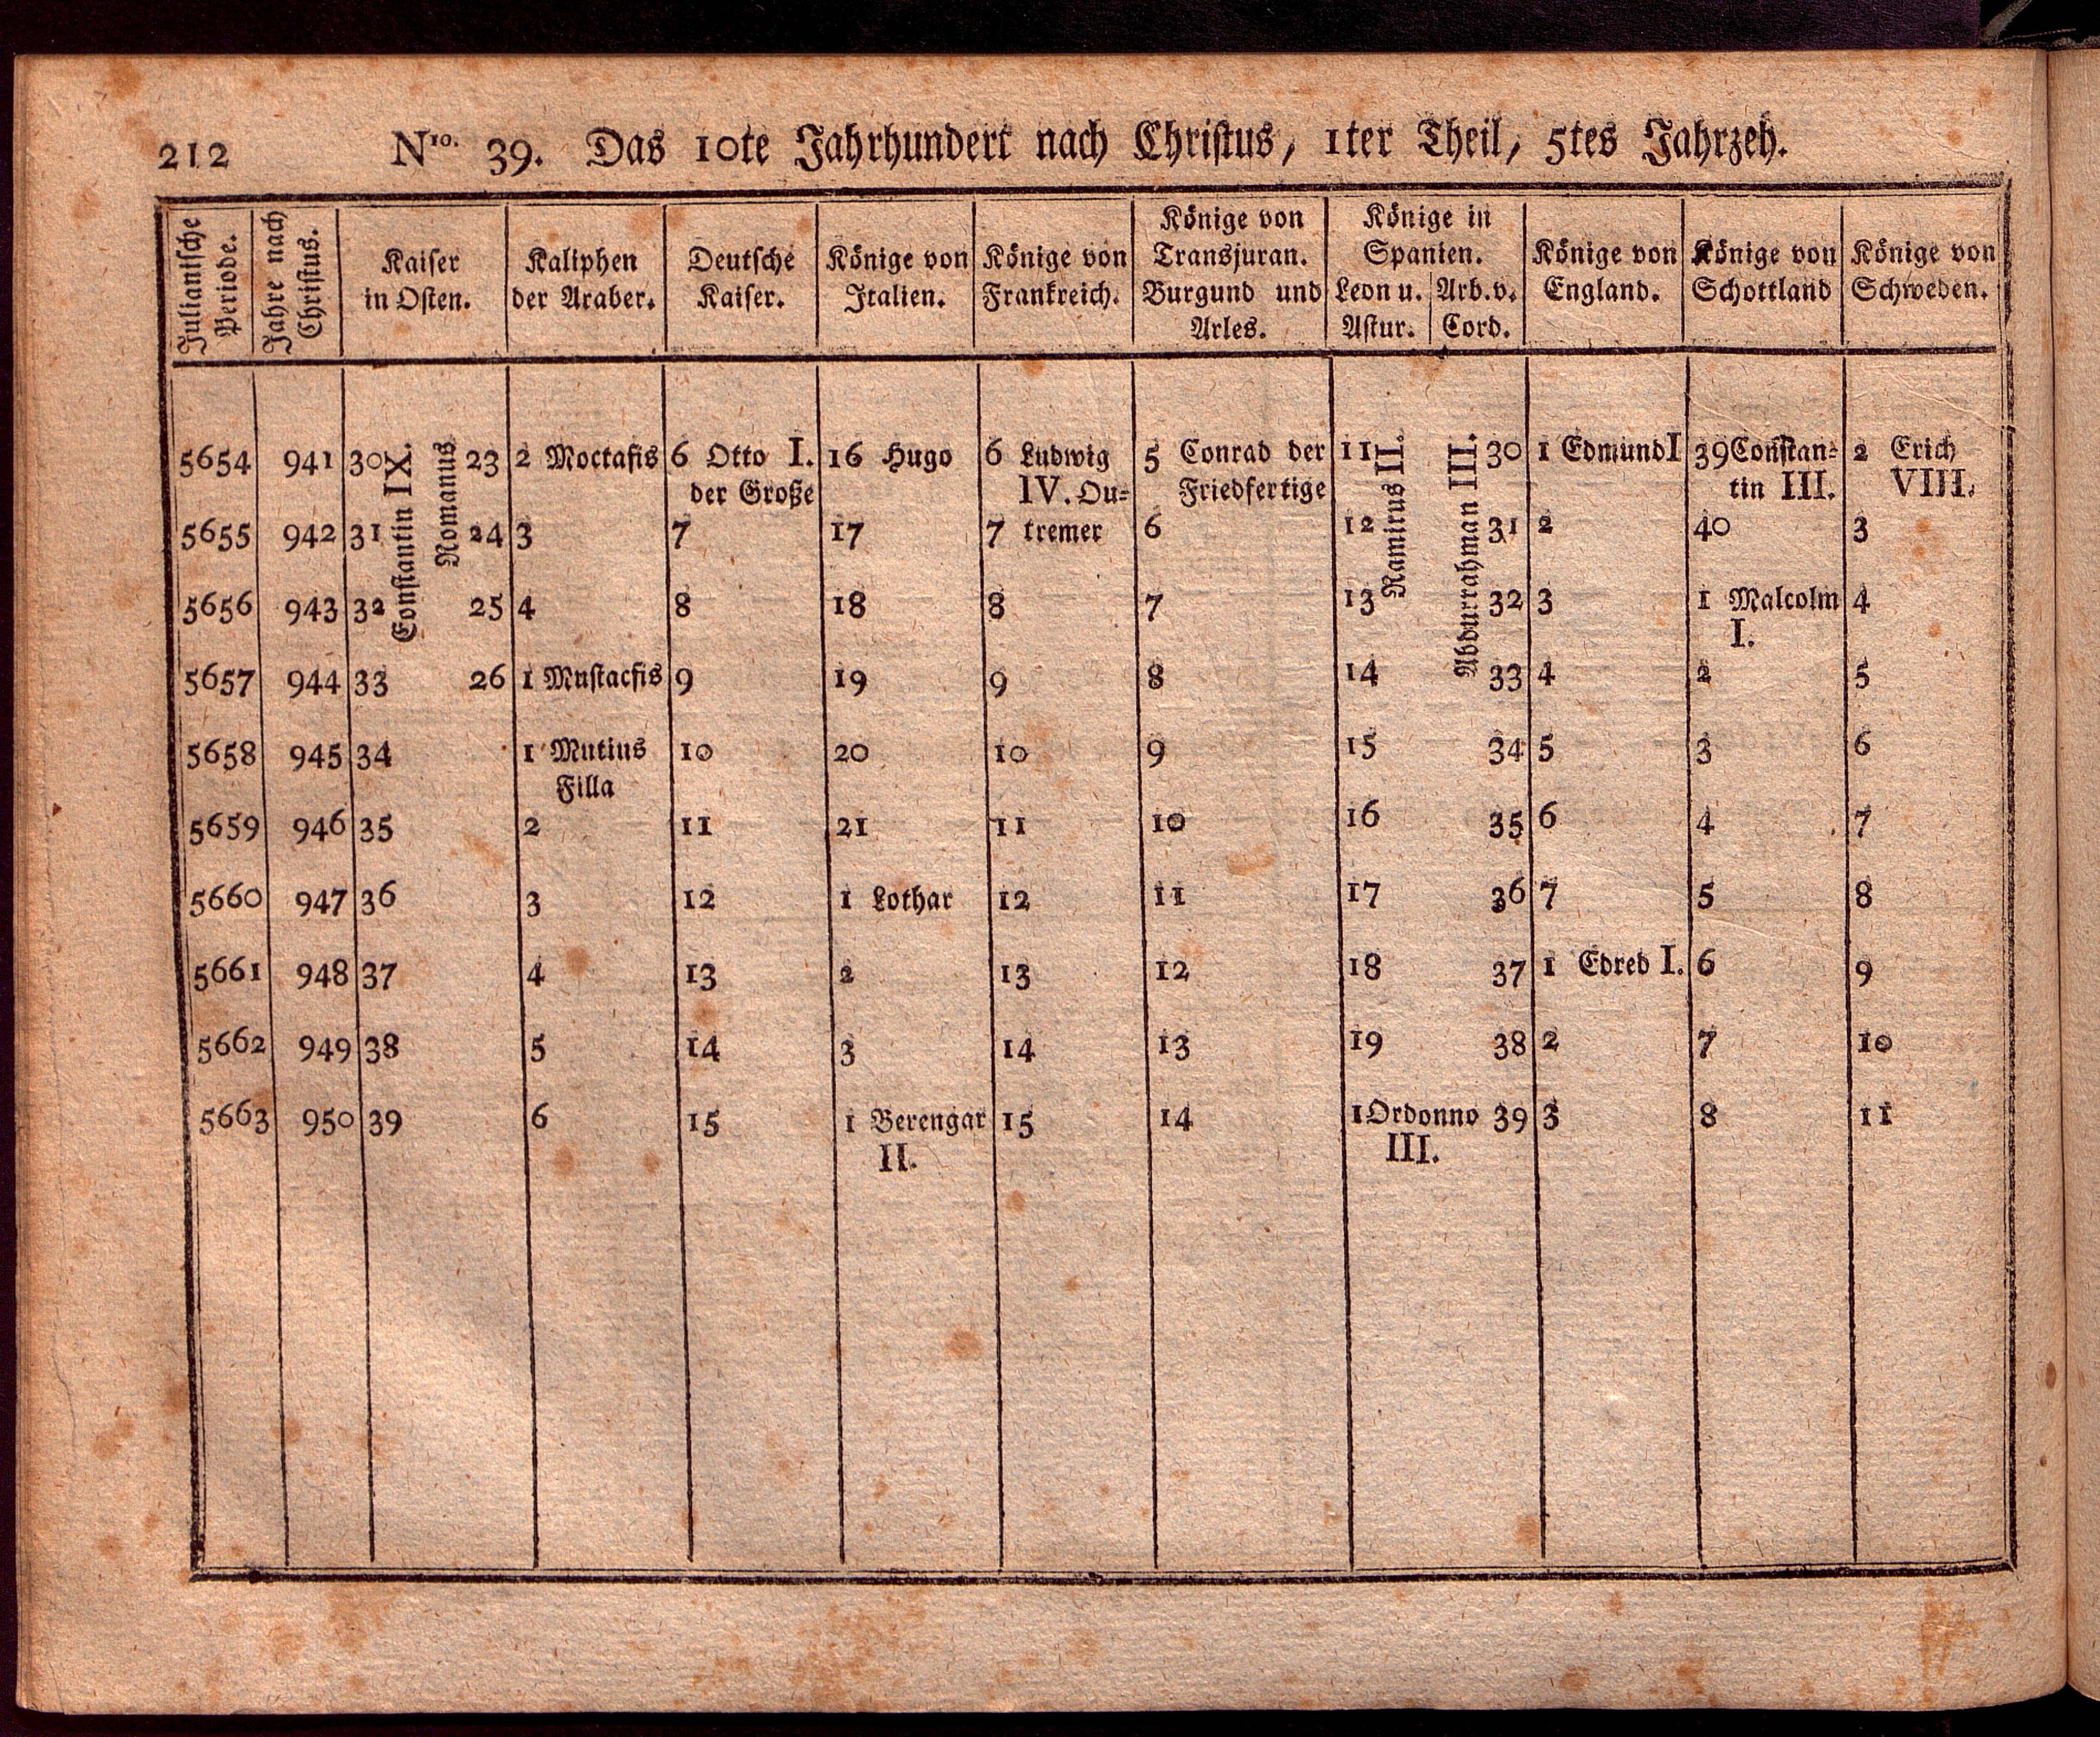 212 Nro. 39. Das 10te Jahrhundert nach Christus, 1ter Theil, 5tes Jahrzeh.
Julianische
Periode.
Jahre nach
Christus.
Kaiser
in Osten.
Kaliphen
der Araber.
Deutsche
Kaiser.
Könige von
Italien.
Könige von
Frankreich.
Könige von
Transjuran.
Burgund und
Arles.
Könige in
Spanien.
Leon u.
Astur.
Arb. v.
Cord.
Könige von
England.
Könige von
Schottland
Könige von
Schweden.
Constantin IX.
Romanus
Ramirus II.
Abdurrahman III.
5654 941 30 23 2 Moctafis 6 Otto I. 16 Hugo 6 Ludwig 5 Conrad der 11 30 1 Edmund I 39 Constan- 2 Erich
der Große IV. Ou- Friedfertige tin III. VIII.
5655 942 31 24 3 7 17 7 tremer 6 12 31 2 40 3
5656 943 32 25 4 8 18 8 7 13 32 3 1 Malcolm 4
I.
5657 944 33 26 1 Mustacfis 9 19 9 8 14 33 4 2 5
5658 945 34 1 Mutius 10 20 10 9 15 34 5 3 6
Filla
5659 946 35 2 11 21 11 10 16 35 6 4 7
5660 947 36 3 12 1 Lothar 12 11 17 36 7 5 8
5661 948 37 4 13 2 13 12 18 37 1 Edred I. 6 9
5662 949 38 5 14 3 14 13 19 38 2 7 10
5663 950 39 6 15 1 Berengar 15 14 1 Ordonno 39 3 8 11
II. III.